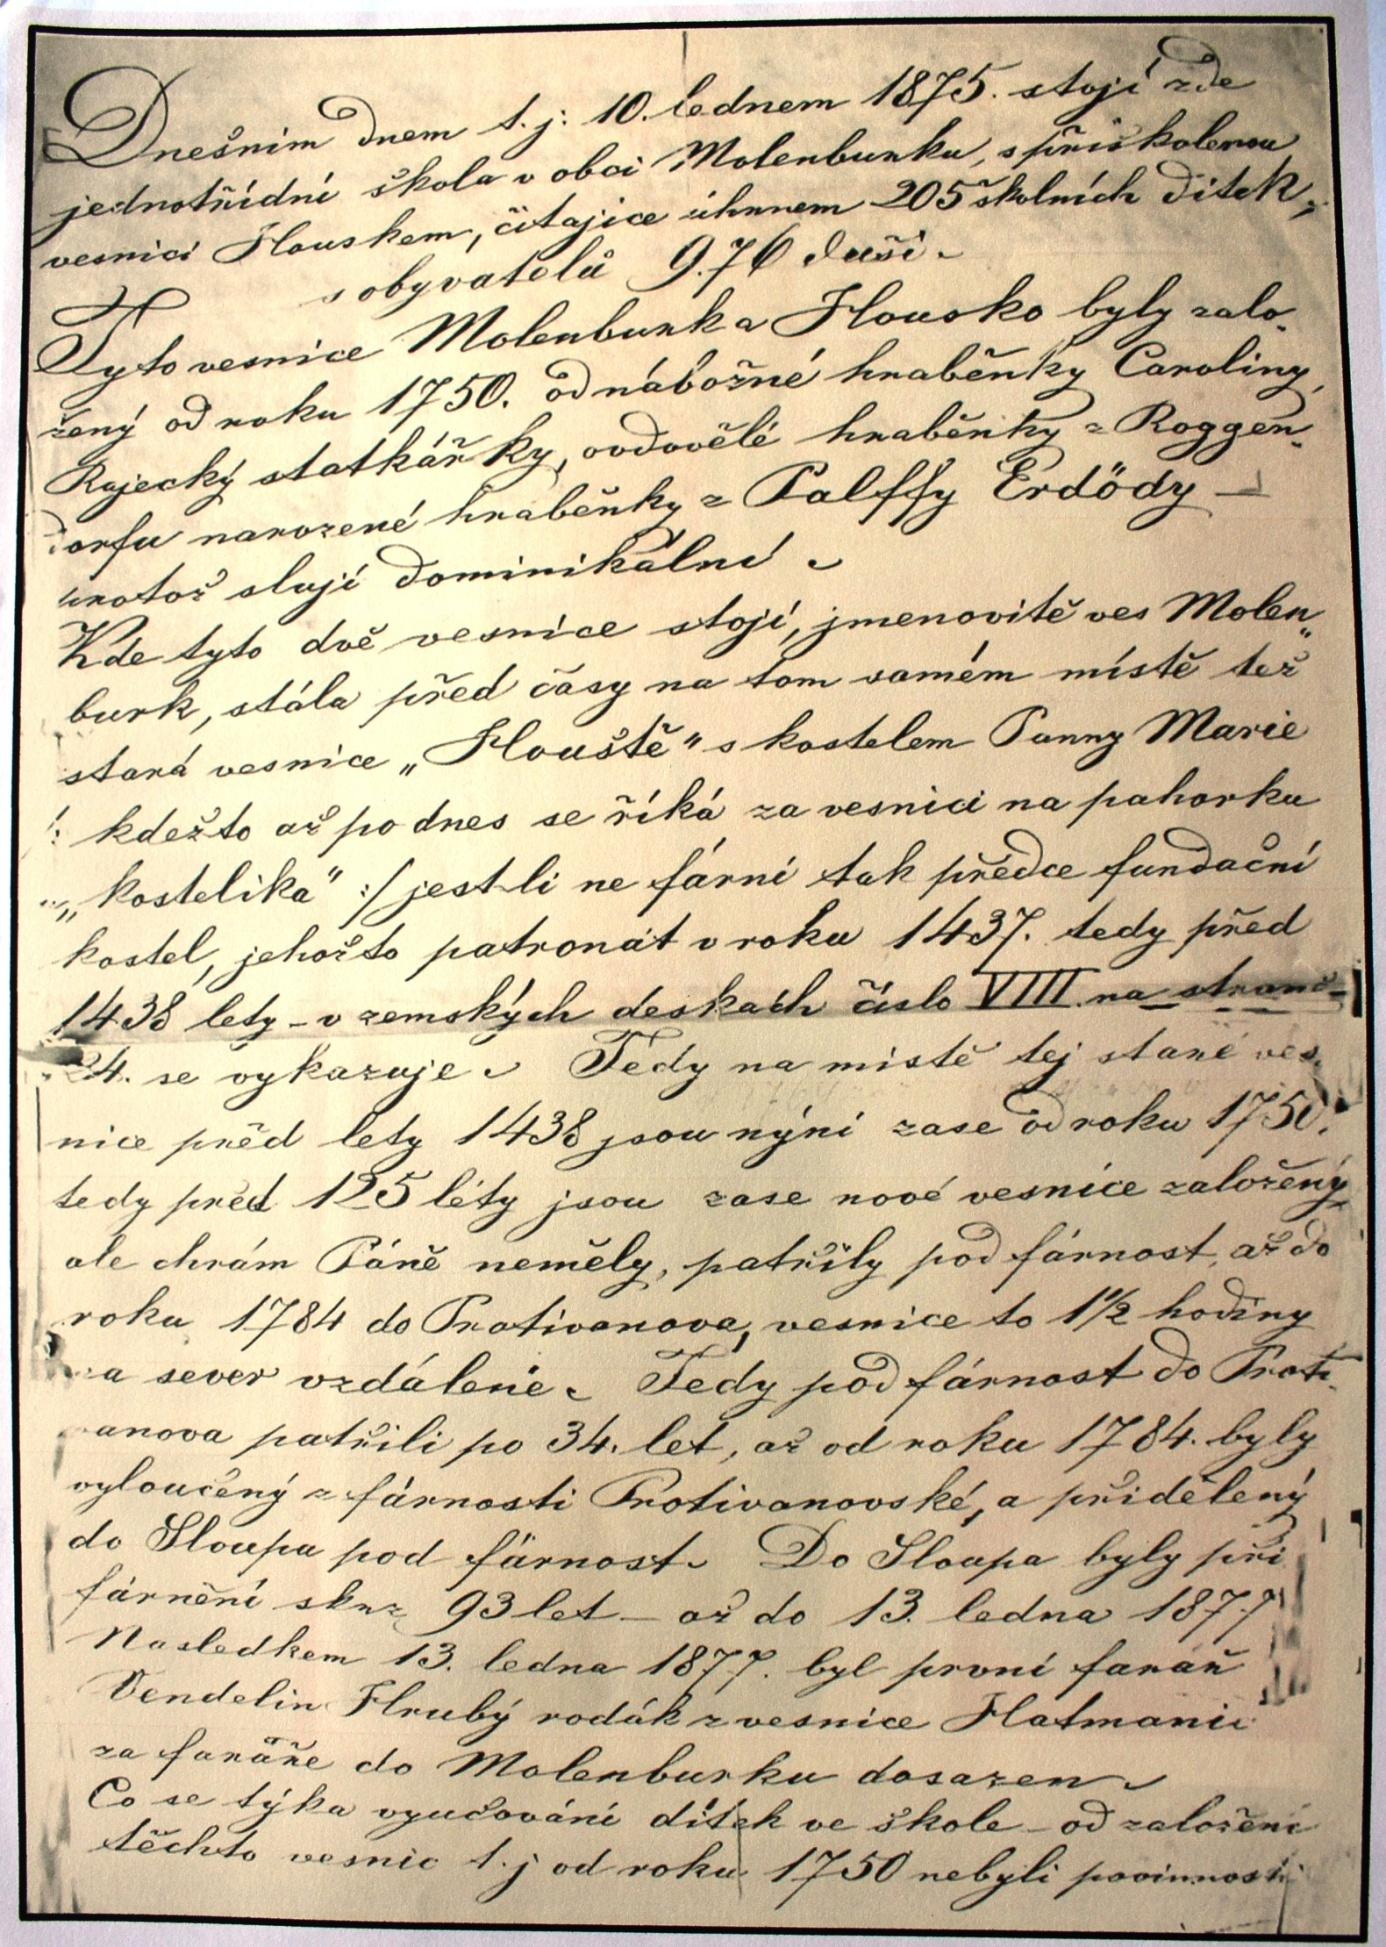 Dnešním dnem t. j: 10. lednem 1875. stojí zde
jednotřídní škola v obci Molenburku, s přiškolenou
vesnici Houskem, čítajíce úhrnem 205 školních dítek,
s obyvatelů 976 duší.
Tyto vesnice Molenburk a Housko byly zalo-
žený od roku 1750. od nábožné hraběnky Caroliny,
Rajecký statkářky, ovdovělé hraběnky z Roggen-
dorfu narozené hraběnky z Palffy Erdödy –
protož slují dominikální.
Kde tyto dvě vesnice stojí, jmenovitě ves Molen„
burk, stála před časy na tom samém místě též
stará vesnice „Houště" s kostelem Panny Marie
/: kdežto až po dnes se říká za vesnici na pahorku
„kostelíka" :/ jest-li ne fární tak předce fundační
kostel, jehožto patronát v roku 1437. tedy před
1438 lety – v zemských deskách číslo VIII. na straně
24. se vykazuje. Tedy na místě tej staré ves-
nice před lety 1438 jsou nýní zase od roku 1750.
tedy před 125 léty jsou zase nové vesnice založený,
ale chrám Páně neměly, patřily pod fárnost, až do
roku 1784 do Protivanova, vesnice to 1½ hodiny
na sever vzdálené. Tedy pod fárnost do Proti-
vanova patřili po 34. let, až od roku 1784. byly
vyloučený z fárnosti Protivanovské, a přidělený
do Sloupa pod fárnost. Do Sloupa byly při
fárnění skrz 93 let – až do 13. ledna 1877
Nasledkem 13. ledna 1877. byl první farář
Vendelin Hrubý rodák z vesnice Hatmanic
za faráře do Molenburku dosazen.
Co se týka vyučování dítek ve škole – od založení
těchto vesnic t. j od roku 1750 nebyli povinnosti